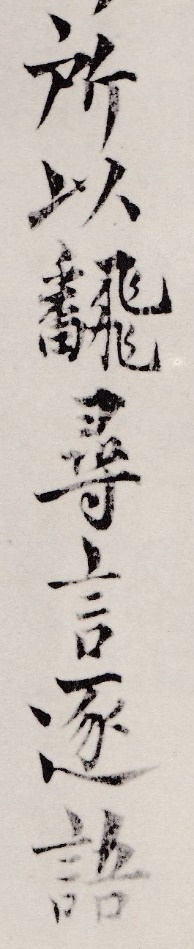 所以飜尋言逐語